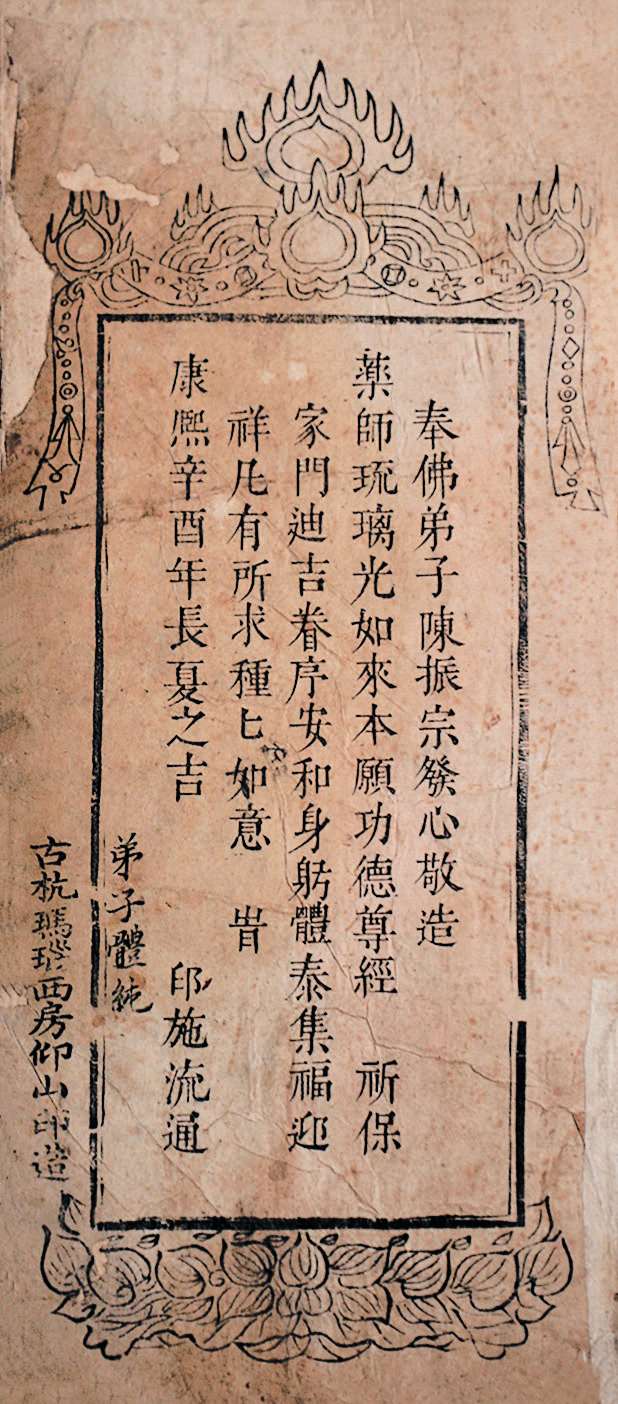 奉佛弟子陳振宗發心敬造
薬師琉璃光如來本願功德尊經　祈保
家門迪吉眷序安和身躬體泰集福迎
祥凡有所求種匕如意　旹
康熈辛酉年長夏之吉　印施流通
弟子體純
古杭瑪瑙西房仰山印造